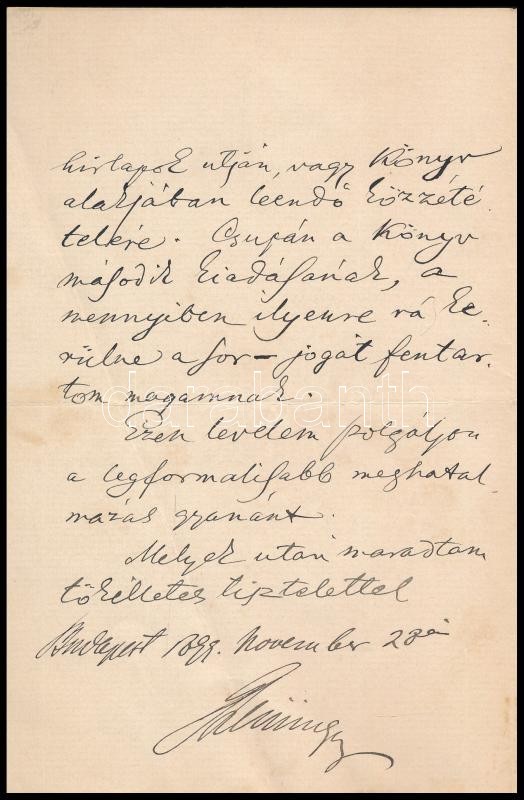 hirlapok utján, vagy Könyv
alakjában leendő közzété
telére. Csupán a Könyv
második kiadásának, a
mennyiben ilyenre rá ke-
rülne a sor – jogát fentar-
tom magamnak.
Ezen levelem szolgáljon
a legformalisabb meghatal-
mazás gyanánt.
Melyek után maradtam
tökélletes tisztelettel
Budapest 1899. November 28án
darabanth